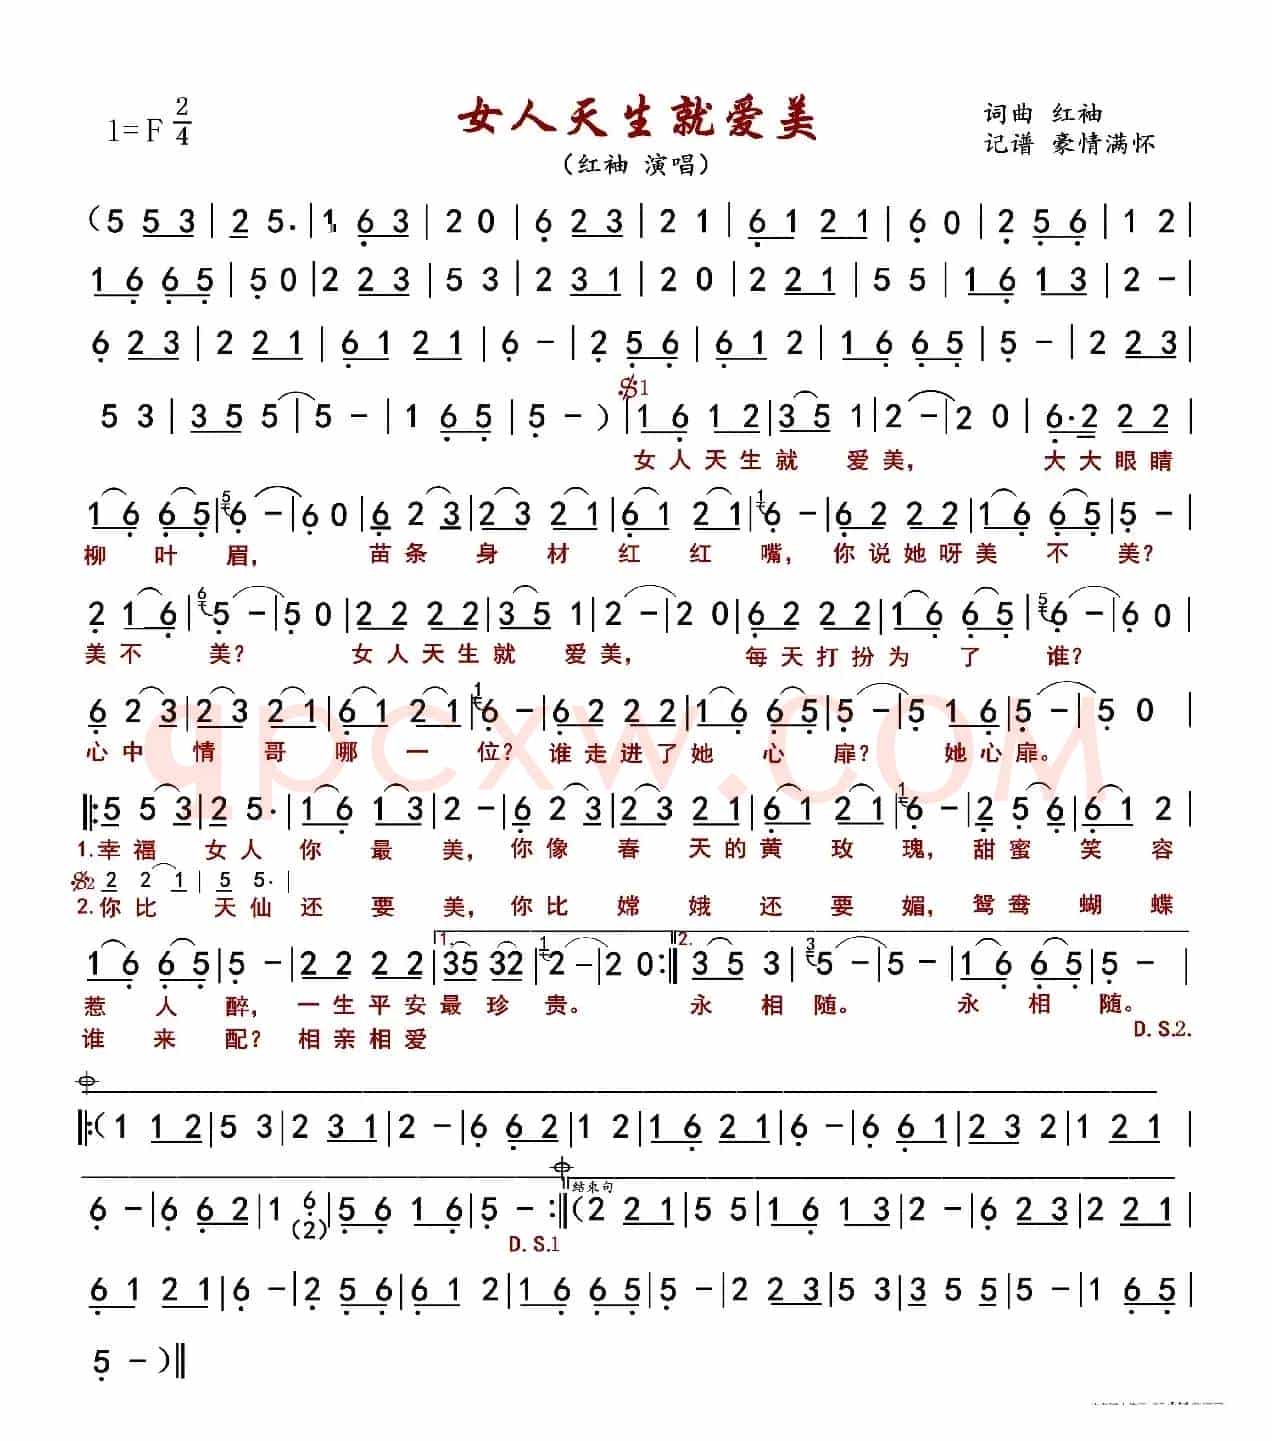 女人天生就爱美
1=F 2/4
（红袖 演唱）
词曲 红袖
记谱 豪情满怀
(5 5 3 | 2 5. | 1 6 3 | 2 0 | 6 2 3 | 2 1 | 6 1 2 1 | 6 0 | 2 5 6 | 1 2 |
1 6 6 5 | 5 0 | 2 2 3 | 5 3 | 2 3 1 | 2 0 | 2 2 1 | 5 5 | 1 6 1 3 | 2 - |
6 2 3 | 2 2 1 | 6 1 2 1 | 6 - | 2 5 6 | 6 1 2 | 1 6 6 5 | 5 - | 2 2 3 |
𝄋1
5 3 | 3 5 5 | 5 - | 1 6 5 | 5 - ) | 1 6 1 2 | 3 5 1 | 2 - | 2 0 | 6·2 2 2 |
女人天生就 爱美， 大大眼睛
1 6 6 5 | 5 6 - | 6 0 | 6 2 3 | 2 3 2 1 | 6 1 2 1 | 1 6 - | 6 2 2 2 | 1 6 6 5 | 5 - |
柳 叶 眉， 苗条 身 材 红 红 嘴， 你说她呀美 不 美？
2 1 6 | 6 5 - | 5 0 | 2 2 2 2 | 3 5 1 | 2 - | 2 0 | 6 2 2 2 | 1 6 6 5 | 5 6 - | 6 0 |
美不 美？ 女人天生就 爱美， 每天打扮为 了 谁？
6 2 3 | 2 3 2 1 | 6 1 2 1 | 1 6 - | 6 2 2 2 | 1 6 6 5 | 5 - | 5 1 6 | 5 - | 5 0 |
心中 情 哥 哪 一 位？ 谁走进了她 心 扉？ 她心扉。
qpcxw.com
‖: 5 5 3 | 2 5. | 1 6 1 3 | 2 - | 6 2 3 | 2 3 2 1 | 6 1 2 1 | 1 6 - | 2 5 6 | 6 1 2 |
1.幸福 女人 你 最 美， 你像 春 天的黄 玫 瑰， 甜蜜 笑 容
𝄋2 2 2 1 | 5 5. |
2.你比 天仙 还 要 美， 你比 嫦 娥还 要 媚， 鸳鸯 蝴 蝶
1. 2.
1 6 6 5 | 5 - | 2 2 2 2 | 3 5 3 2 | 1 2 - | 2 0 :‖ 3 5 3 | 3 5 - | 5 - | 1 6 6 5 | 5 - |
惹 人 醉， 一生平安最 珍 贵。 永 相 随。 永 相 随。
谁 来 配？ 相亲相爱
D.S.2.
‖: (1 1 2 | 5 3 | 2 3 1 | 2 - | 6 6 2 | 1 2 | 1 6 2 1 | 6 - | 6 6 1 | 2 3 2 | 1 2 1 |
结束句
6 - | 6 6 2 | 1 6 (2) | 5 6 1 6 | 5 - :‖ (2 2 1 | 5 5 | 1 6 1 3 | 2 - | 6 2 3 | 2 2 1 |
D.S.1
6 1 2 1 | 6 - | 2 5 6 | 6 1 2 | 1 6 6 5 | 5 - | 2 2 3 | 5 3 | 3 5 5 | 5 - | 1 6 5 |
5 - )‖